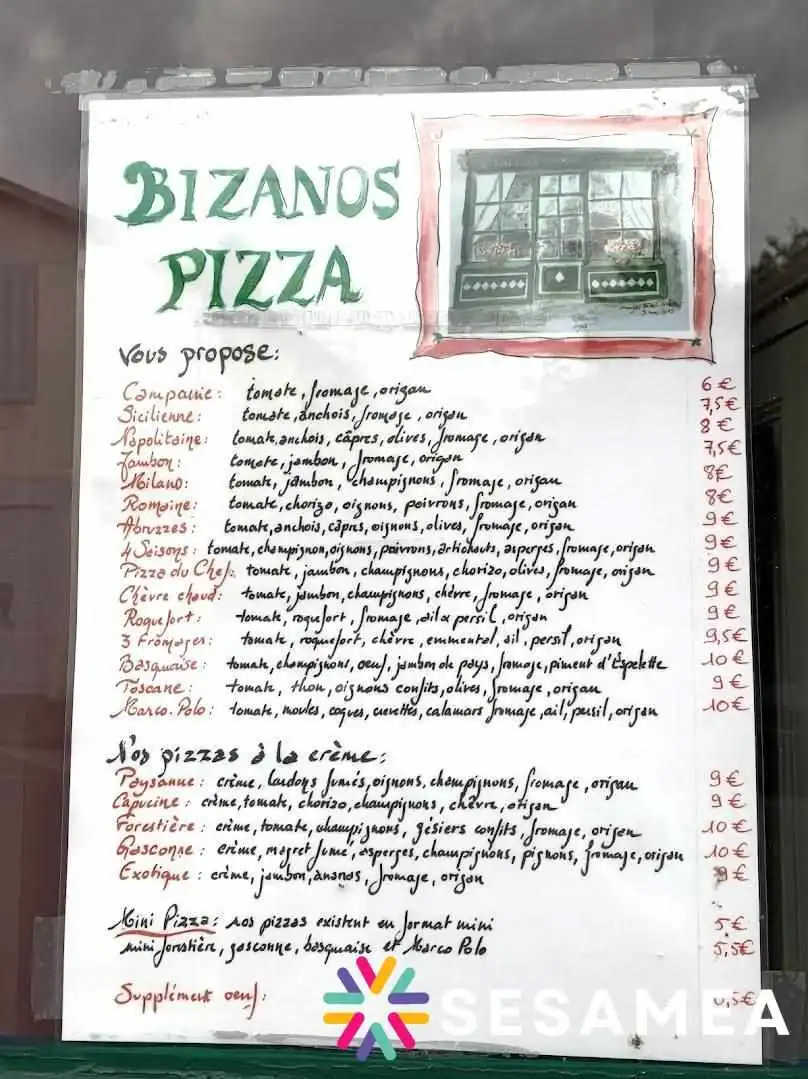 BIZANOS
PIZZA
Vous propose:
Campanie: tomate, fromage, origan 6€
Sicilienne: tomate, anchois, fromage, origan 7,5€
Napolitaine: tomate, anchois, câpres, olives, fromage, origan 8€
Jambon: tomate, jambon, fromage, origan 7,5€
Milano: tomate, jambon, champignons, fromage, origan 8€
Romaine: tomate, chorizo, oignons, poivrons, fromage, origan 8€
Abruzzes: tomate, anchois, câpres, oignons, olives, fromage, origan 9€
4 Saisons: tomate, champignon, oignons, poivrons, artichauts, asperges, fromage, origan 9€
Pizza du Chef: tomate, jambon, champignons, chorizo, olives, fromage, origan 9€
Chèvre chaud: tomate, jambon, champignons, chèvre, fromage, origan 9€
Roquefort: tomate, roquefort, fromage, ail & persil, origan 9€
3 Fromages: tomate, roquefort, chèvre, emmental, ail, persil, origan 9,5€
Basquaise: tomate, champignons, oeuf, jambon de pays, fromage, piment d'Espelette 10€
Toscane: tomate, thon, oignons confits, olives, fromage, origan 9€
Marco-Polo: tomate, moules, coques, crevettes, calamars fromage, ail, persil, origan 10€
Nos pizzas à la crème:
Paysanne: crème, lardons fumés, oignons, champignons, fromage, origan 9€
Capucine: crème, tomate, chorizo, champignons, chèvre, origan 9€
Forestière: crème, tomate, champignons, gésiers confits, fromage, origan 10€
Gasconne: crème, magret fumé, asperges, champignons, pignons, fromage, origan 10€
Exotique: crème, jambon, ananas, fromage, origan 9€
Mini Pizza: nos pizzas existent en format mini 5€
mini forestière, gasconne, basquaise et Marco Polo 5,5€
Supplément oeuf: 0,5€
SESAMEA